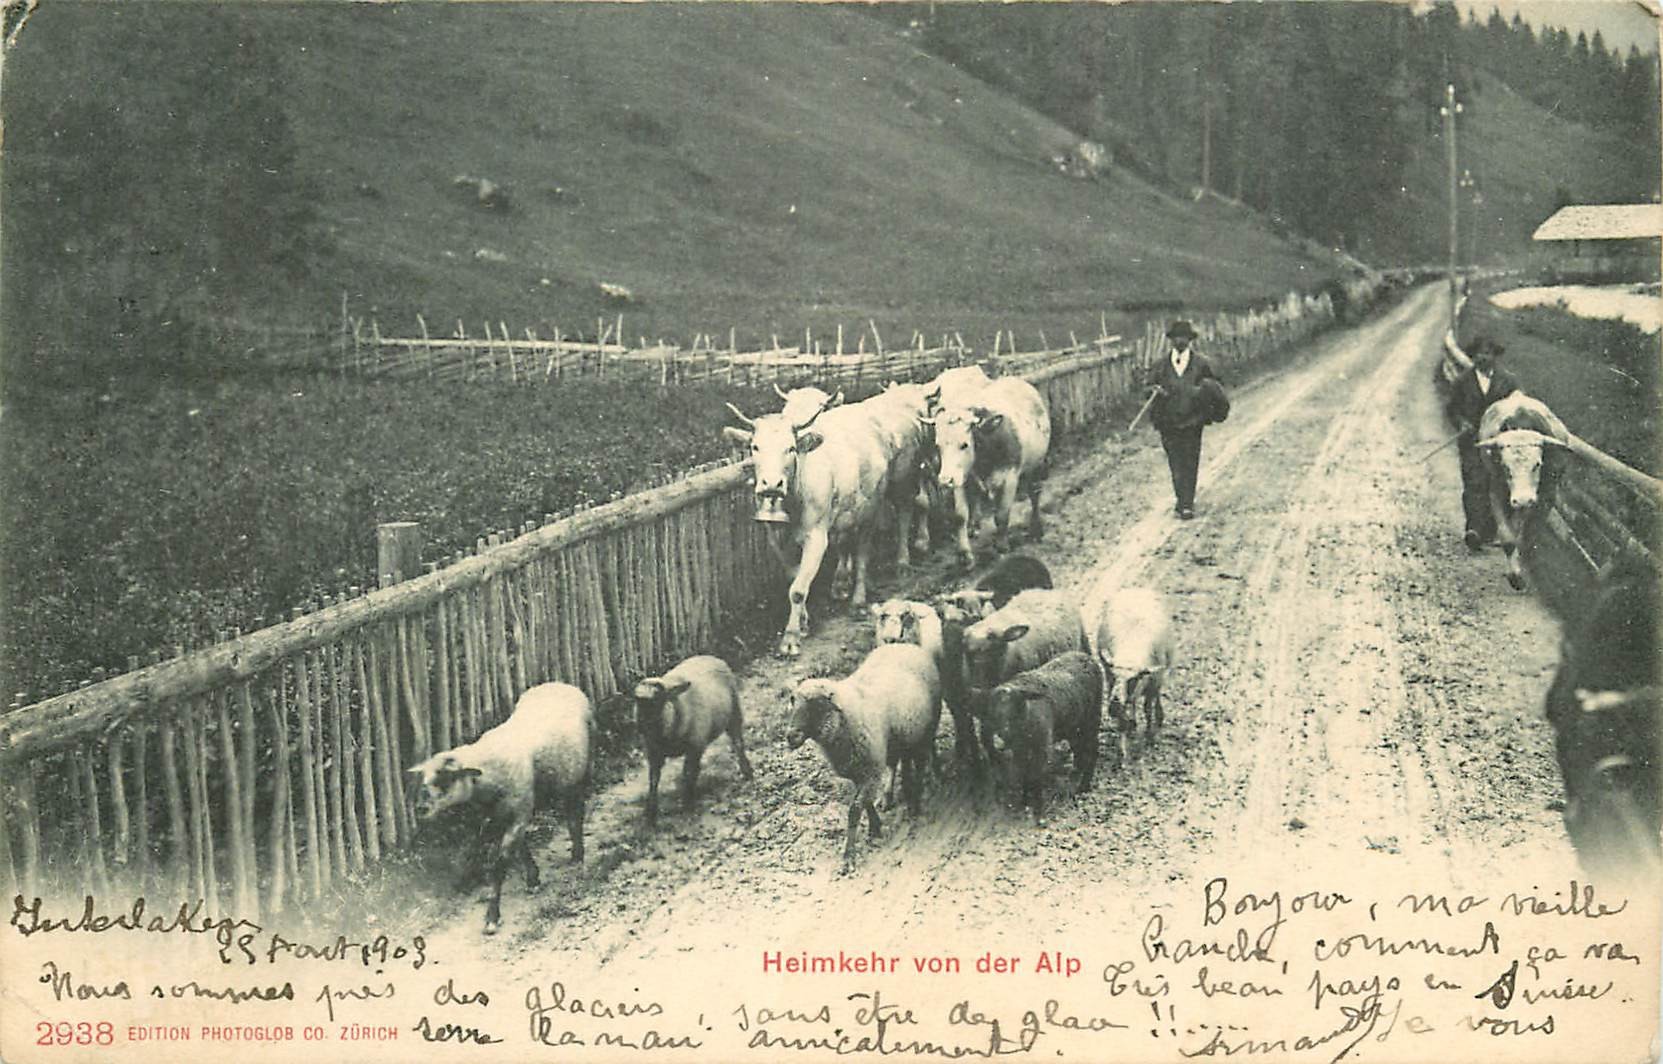 Interlaken
25 Aout 1903.
Heimkehr von der Alp
Bonjour, ma vieille
comment ça va
Très beau pays en Suisse..
Nous sommes près des glaciers, sans être de glace !!.....
Je vous
serre la main amicalement.
Armand
2938 EDITION PHOTOGLOB CO. ZÜRICH